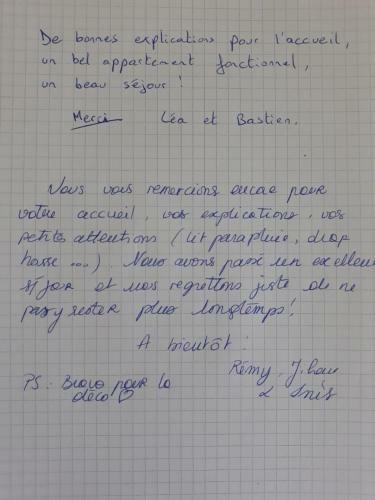 De bonnes explications pour l'accueil,
un bel appartement fonctionnel,
un beau séjour !
Merci Léa et Bastien.
Nous vous remercions encore pour
votre accueil, vos explications, vos
petites attentions (lit parapluie, drap
housse ...). Nous avons passé un excellent
séjour et nous regrettons juste de ne
pas y rester plus longtemps !
A bientôt !
Rémy,
PS : Bravo pour la
déco ♡
& Inès